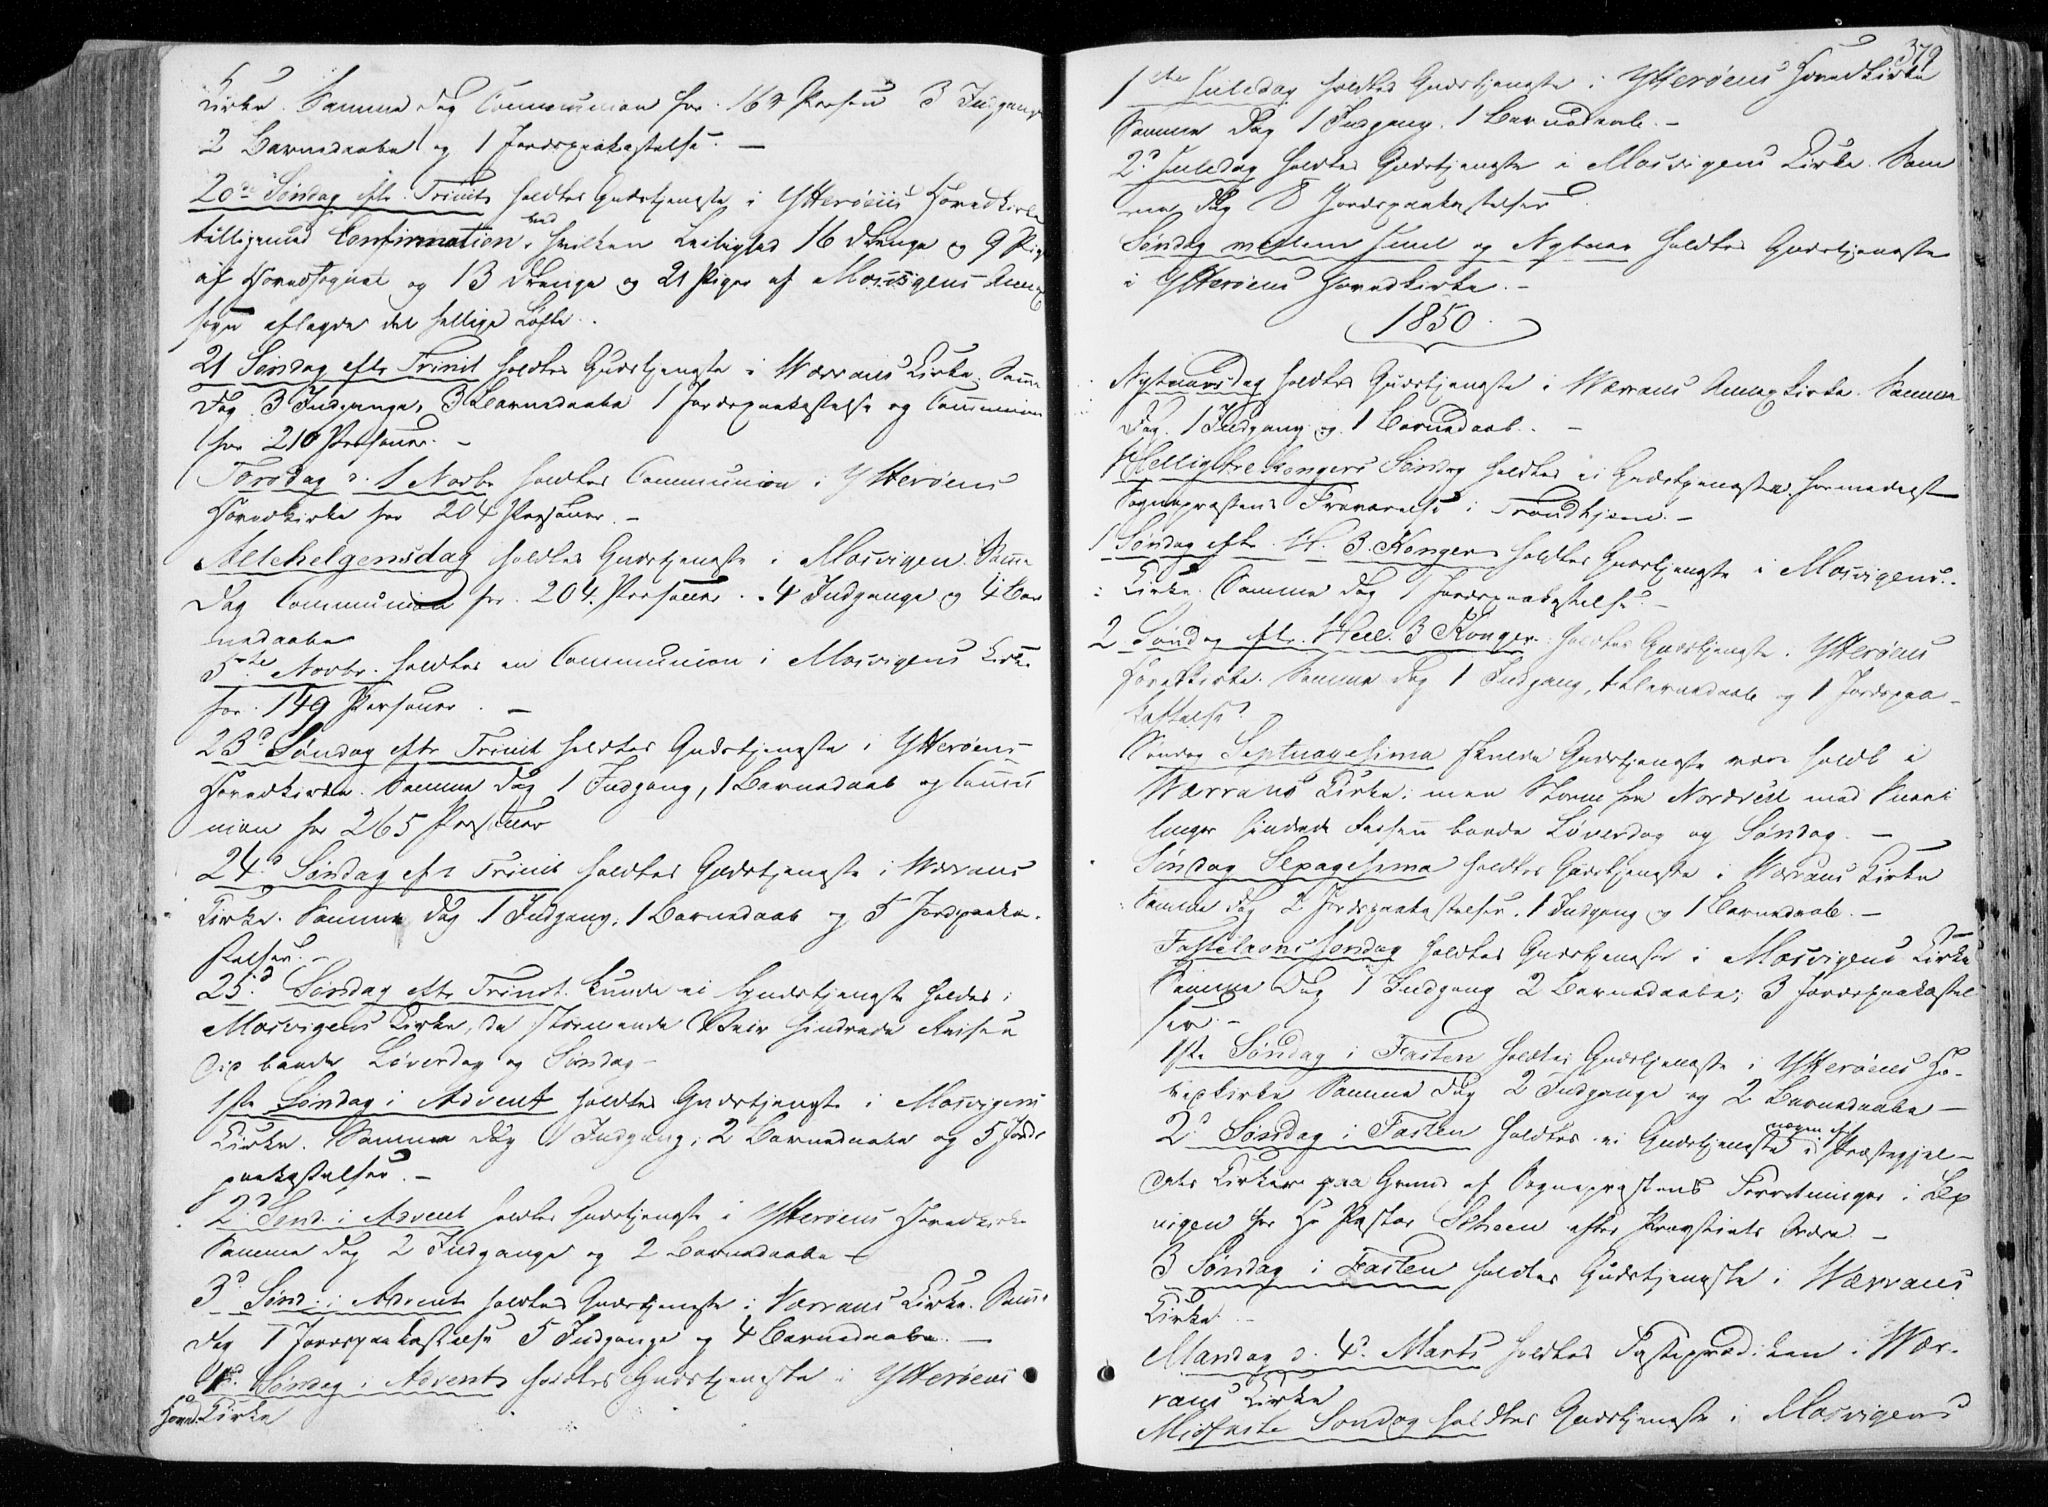 Kirke. Samme Dag Communion for 162 Person 3 Indgange
2 Barnedaabe og 1 Jordspaakastelse. —
20de Søndag eftr Trinit. holdtes Gudstjeneste i Ytterøens Hovedkirke
tilligemed Confirmation, ved hvilken Leilighed 16 Drenge og 9 Pig
af Hovedsognet og 13 Drenge og 21 Piger af Mosvigens Annex
sogn aflagde det hellige Løfte.
21 Søndag eftr Trinit holdtes Gudstjeneste i Værrans Kirke. Samme
Dag 3 Indgange, 3 Barnedaabe 1 Jordspaakastelse og Communion
for 210 Personer. —
Torsdag d. 1 Novbr holdtes Communion i Ytterøens
Hovedkirke for 204 Personer. —
Allehelgensdag holdtes Gudstjeneste i Mosvigen. Samme
Dag Communion for 204 Personer. 4 Indgange og 4 Bar
nedaabe
5te Novbr. holdtes en Communion i Mosvigens Kirke
for 149 Personer. —
23d Søndag eftr Trinit holdtes Gudstjeneste i Ytterøens
Hovedkirke. Samme Dag 1 Indgang, 1 Barnedaab og Commu
nion for 265 Personer
24d Søndag eftr Trinit holdtes Gudstjeneste i Værrans
Kirke. Samme Dag 1 Indgang, 1 Barnedaab og 5 Jordpaaka-
stelser. —
25d Søndag eftr Trinit. kunde ei Gudstjeneste holdes i
Mosvigens Kirke, da stormende Veir hindrede Reisen
did baade Løverdag og Søndag —
1ste Søndag i Advent holdtes Gudstjeneste i Mosvigens
Kirke. Samme Dag 1 Indgang, 2 Barnedaabe og 5 Jords
paakastelser. —
2d Sønd. i Advent holdtes Gudstjeneste i Ytterøens Hovedkirke
Samme Dag 2 Indgange og 2 Barnedaabe —
3d Sønd. i Advent holdtes Gudstjeneste i Værrans Kirke. Samme
Dag 1 Jordspaakastelse 5 Indgange og 4 Barnedaabe. —
4d. Søndag i Advent holdtes Gudstjeneste i Ytterøens
Hoved Kirke
379
1ste Juledag holdtes Gudstjeneste i Ytterøens Hovedkirke
Samme Dag 1 Indgang. 1 Barnedaab. —
2d Juledag holdtes Gudstjeneste i Mosvigens Kirke. Sam
me Dag 8 Jordspaakastelser.
Søndag mellem Juul og Nytaar holdtes Gudstjeneste
i Ytterøens Hovedkirke. —
1850.
Nytaarsdag holdtes Gudstjeneste i Værrans Annexkirke. Samme
Dag 1 Indgang og 1 Barnedaab. —
Hellig tre Kongers Søndag holdtes ei Gudstjeneste formedelst
Sognepræstens Fraværelse i Trondhjem. —
1 Søndag eftr H. 3 Konger holdtes Gudstjeneste i Mosvigens
Kirke. Samme Dag 1 Jordspaakastelse. —
2 Søndag eftr Hell. 3 Konger. holdtes Gudstjeneste i Ytterøens
Hovedkirke. Samme Dag 1 Indgang, 1 Barnedaab og 1 Jordspaa-
kastelse.
Søndag Septuagesima skulde Gudstjeneste være holdt i
Værrans Kirke; men Storm fra Nordvest med Snee
linger hindrede Reisen baade Løverdag og Søndag. —
Søndag Sexagesima holdtes Gudstjeneste i Værrans Kirke
Samme Dag 2 Jordspaakastelser, 1 Indgang og 1 Barnedaab. —
Fastelavns Søndag holdtes Gudstjeneste i Mosvigens Kirke
Samme Dag 1 Indgang 2 Barnedaabe; 3 Jordspaakastel
ser. —
1ste Søndag i Fasten holdtes Gudstjeneste i Ytterøens Ho-
vedkirke Samme Dag 2 Indgange og 2 Barnedaabe —
2d Søndag i Fasten holdtes ei Gudstjeneste i nogen af Præstegjel-
dets Kirker paa Grund af Sognepræstens Forretninger i Lex
vigen for Hr Pastor Scheen efter Provstiets Ordre. —
3 Søndag i Fasten holdtes Gudstjeneste i Værrans
Kirke. —
Mandag d. 4d Marts holdtes Fasteprædiken i Vær-
rans Kirke
Midfaste Søndag holdtes Gudstjeneste i Mosvigens